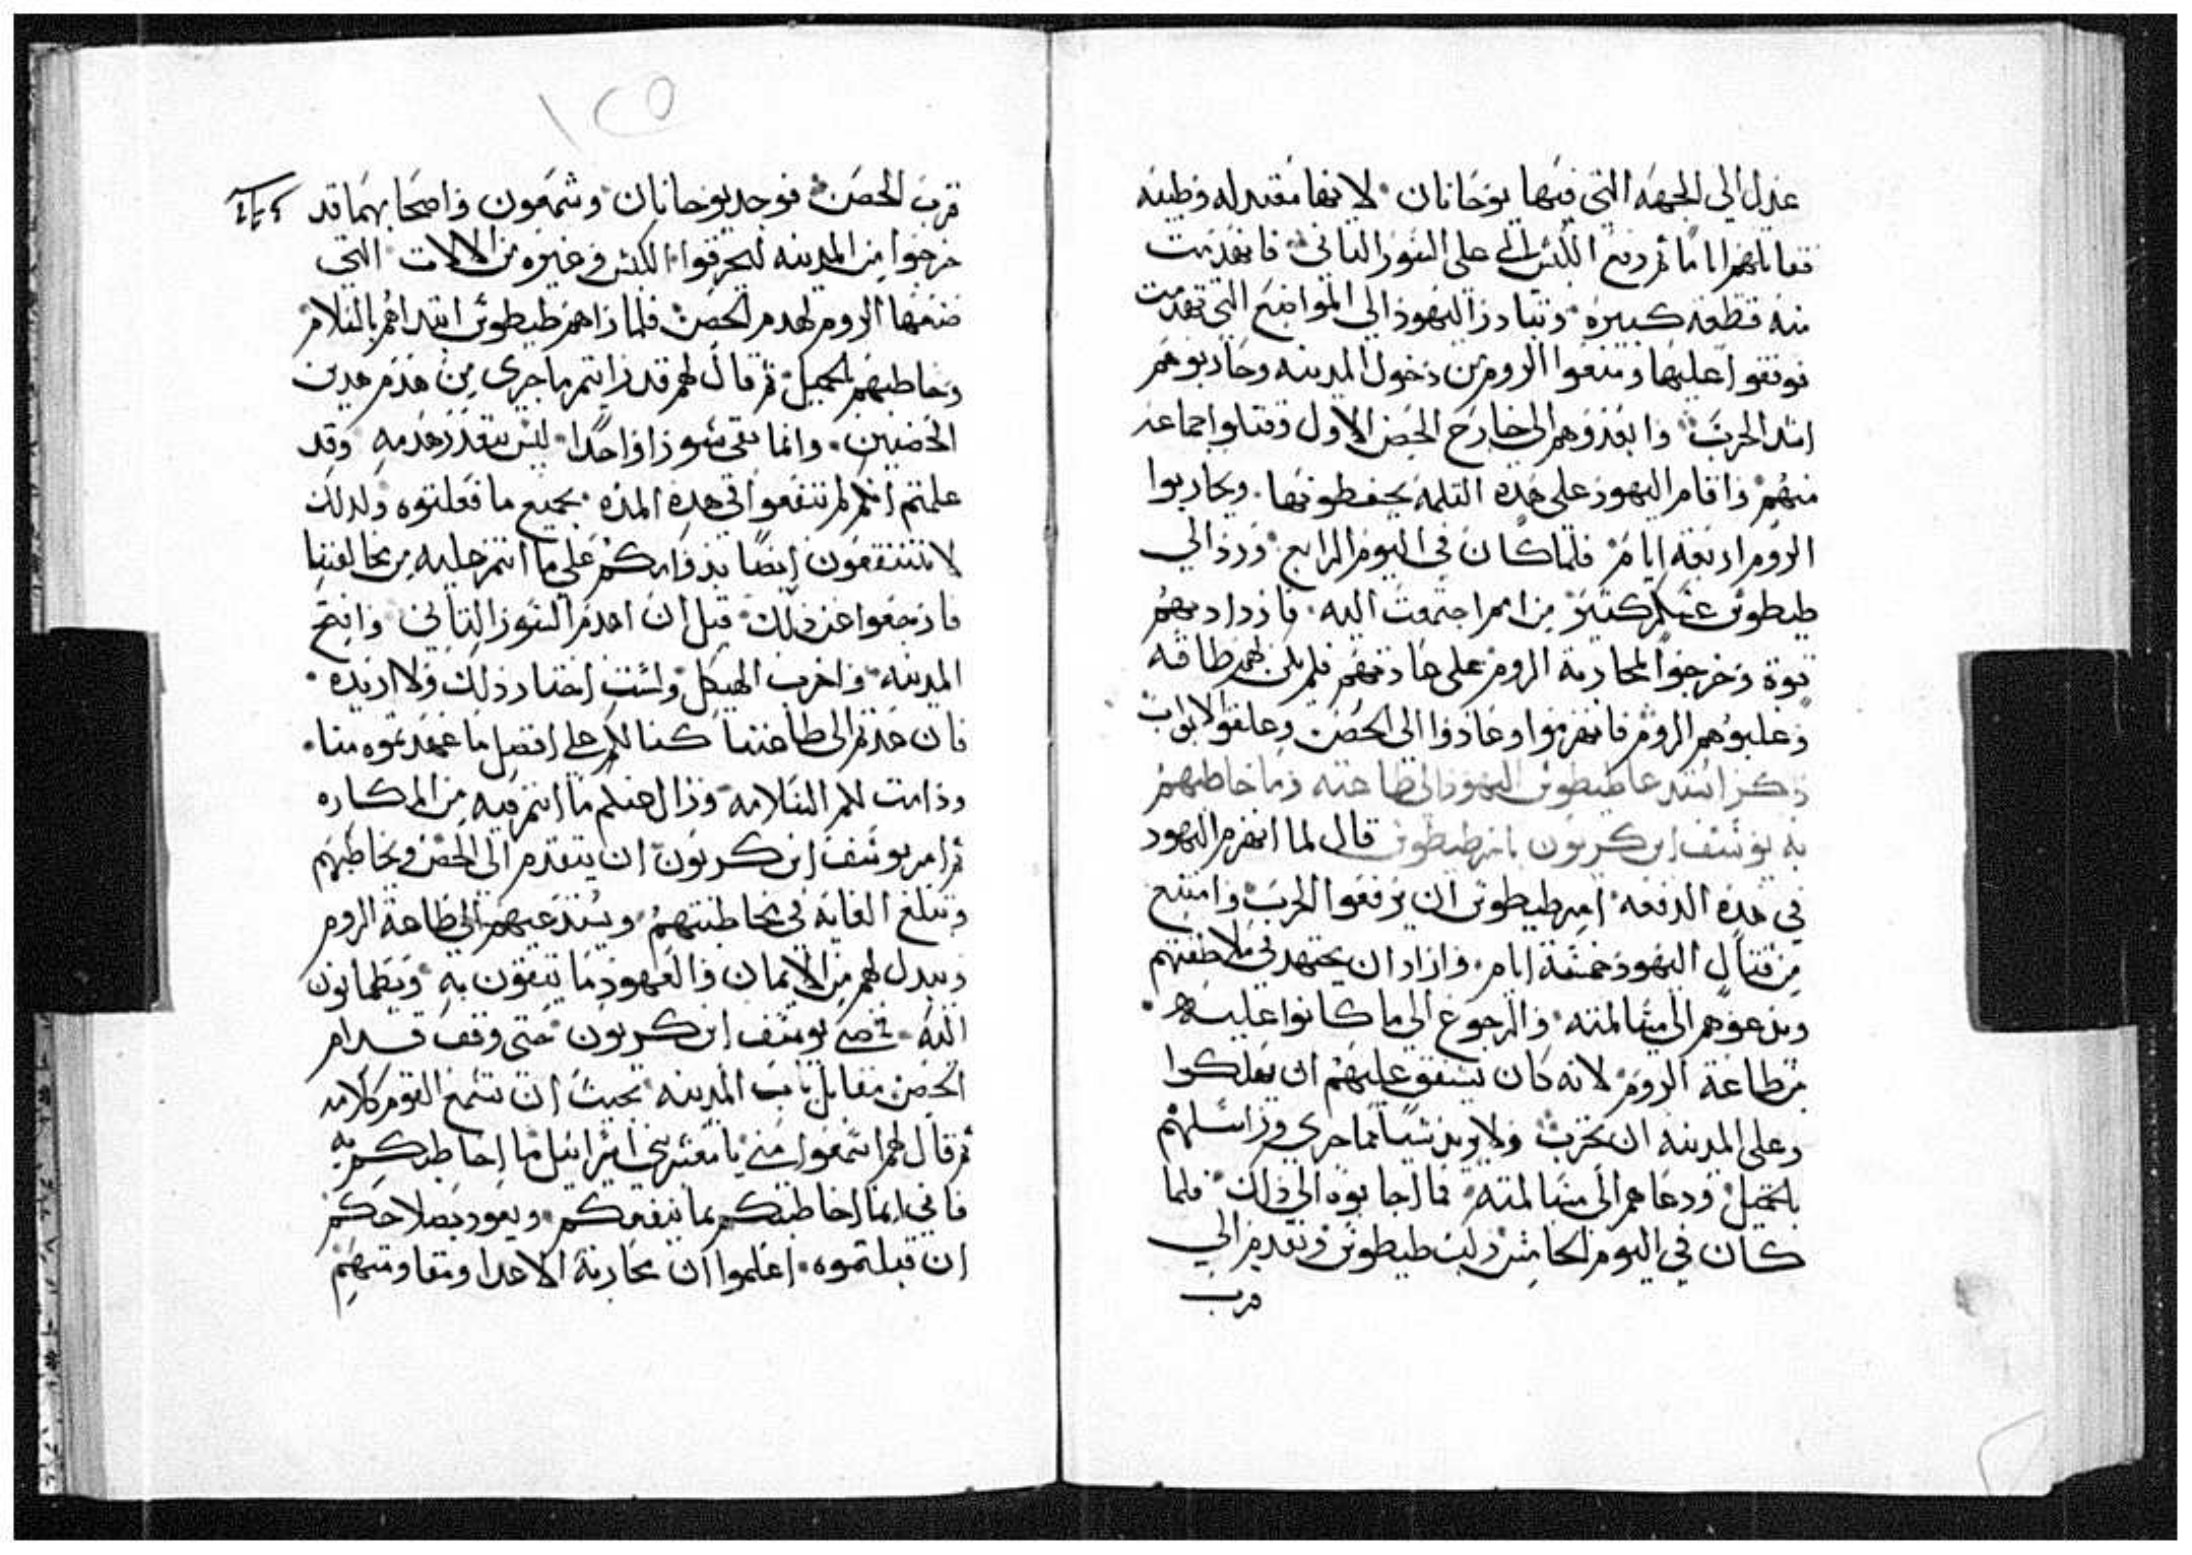 عدل الي الجهه التي فيها يوحانان لانها معتدله وطيه
فقاتلهم اياما ثم دفع الكبش الى على السور الثاني فانهدمت
منه قطعه كبيره وتبادر اليهود الي المواضع التي تهدمت
فوقفوا عليها ومنعوا الروم من دخول المدينه وحاربوهم
اشد الحرب وابعدوهم الى خارج الحصن الاول وقتلوا جماعه
منهم واقام اليهود على هده التلمه يحفظونها ويحاربوا
الروم اربعه ايام فلما كان في اليوم الرابع ورد الي
طيطوس عسكر كتير من امم اجتمعت اليه فازداد بهم
قوة وخرجوا لمحاربة الروم على عادتهم فلم يكن لهم طاقه
وغلبوهم الروم فانهزموا وعادوا الى الحصن وغلقوا الابواب
ذكر استدعا طيطوس اليهود الى طاعته وما خاطبهم
به يوسف ابن كريون بامر طيطوس قال لما انهزم اليهود
في هده الدفعه امر طيطوس ان يرفعوا الحرب وامتنع
من قتال اليهود خمسة ايام واراد ان يجتهد في ملاطفتهم
ويدعوهم الى مسالمته والرجوع الي ما كانوا عليه
من طاعة الروم لانه كان يشفق عليهم ان يهلكوا
وعلى المدينه ان تخرب ولا يريد شيا مما جري وراسلهم
بالجميل ودعاهم الى مسالمته فما اجابوه الى ذلك فلما
كان في اليوم الخامس ركب طيطوس وتقدم الي
قرب
١٢٥
قرب الحصن فوجد يوحانان وشمعون واصحابهما قد
خرجوا من المدينه ليحرقوا الكبش وغيره من الالات التي
صنعها الروم لهدم الحصن فلما راهم طيطوس ابتداهم بالسلام
وخاطبهم بالجميل ثم قال لهم قد رايتم ما جرى من هدم هدين
الحصنين وانما بقي سورا واحدا ليس يتعدر هدمه وقد
علمتم انكم لم تنتفعوا في هده المده بجميع ما فعلتوه ولدلك
لا تنتفعون ايضا بدوامكم على ما انتم عليه من مخالفتنا
فارجعوا عن ذلك قبل ان اهدم السور التاني وافتح
المدينه واخرب الهيكل ولست اختار ذلك ولا اريده
فان عدتم الى طاعتنا كنا لكم على افضل ما عهدتموه منا
ودامت لكم السلامه وزال عنكم ما انتم فيه من المكاره
ثم امر يوسف ابن كريون ان يتقدم الى الحصن ويخاطبهم
ويبلغ الغايه في مخاطبتهم ويستدعيهم الى طاعة الروم
ويبدل لهم من الايمان والعهود ما يتقون به ويطمانون
اليه فمضى يوسف ابن كريون حتى وقف قدام
الحصن مقابل باب المدينه بحيث ان تسمع القوم كلامه
ثم قال لهم اسمعوا مني يا معشر بني اسرائيل ما اخاطبكم به
فاني انما اخاطبكم بما ينفعكم ويعود بصلاحكم
ان قبلتموه اعلموا ان محاربة الاعدا ومقاومتهم